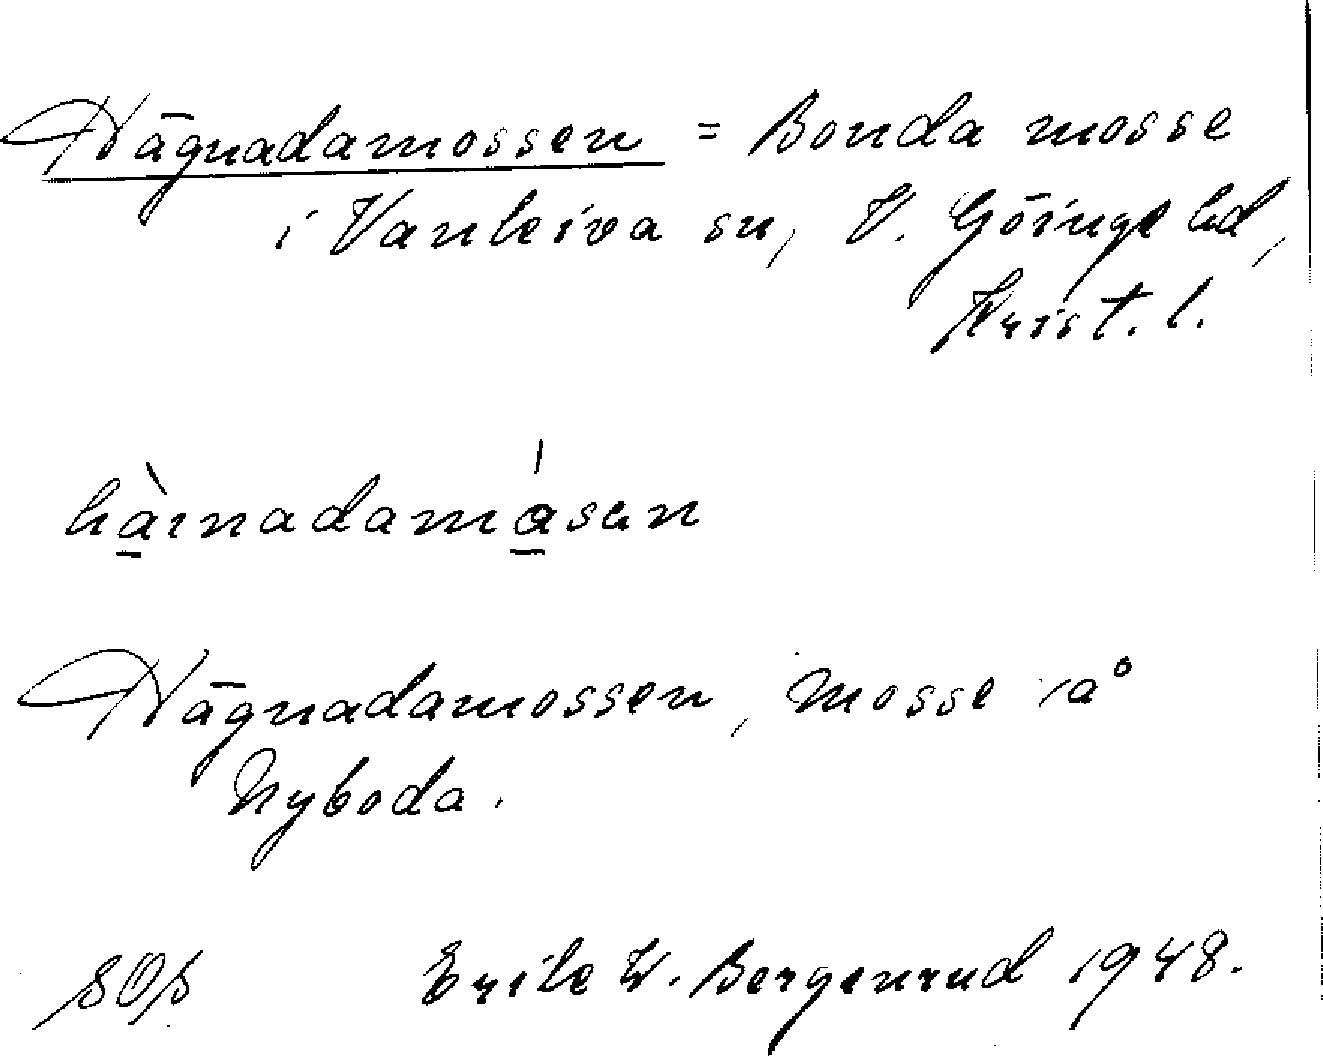 Hägnadamossen = Bonda mosse
i Vankiva sn, V. Göinge hd,
Krist. l.
hàinadamåsen
Hägnadamossen, mosse å
Nyboda.
SOS Erik W. Bergenrud 1948.